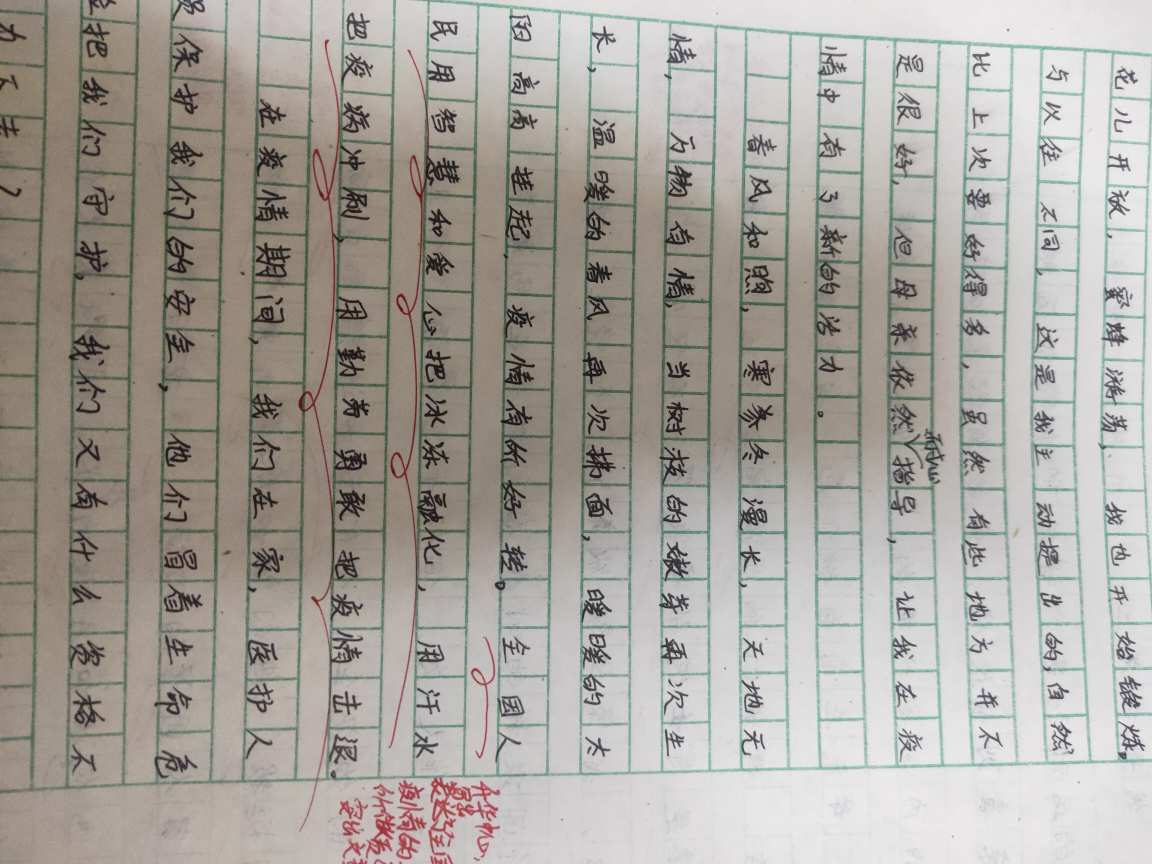 花儿开放,蜜蜂游荡,我也开始锻炼。
与以往不同,这是我主动提出的,自然
比上次要好得多,虽然有些地方并不
是很好,但母亲依然耐心指导,让我在疫
情中有了新的活力。
春风和煦,寒冬漫长,天地无
情,万物有情,当树枝的嫩芽再次生
长,温暖的春风再次拂面,暖暖的太
阳高高挂起,疫情有所好转。全国人
民用智慧和爱心把冰冻融化,用汗水
把疫病冲刷,用勤劳勇敢把疫情击退。
在疫情期间,我们在家,医护人
员保护我们的安全,他们冒着生命危
险把我们守护,我们又有什么资格不
力不去?
升华中心,
表达了全国
疫情的
所做